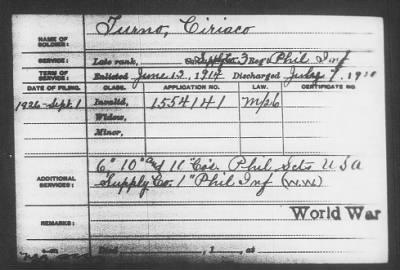 NAME OF SOLDIER: Turno, Ciriaco
SERVICE: Late rank, Supply Co. 3 Reg't Phil Inf
TERM OF SERVICE: Enlisted June 13, 1914 Discharged July 7, 19
DATE OF FILING. CLASS. APPLICATION NO. LAW. CERTIFICATE NO.
1926-Sept. 1 Invalid, 1554141 Mp6
Widow,
Minor,
ADDITIONAL SERVICES: 6" 10" and 11" Co's. Phil Scts U.S.A
Supply Co. 1" Phil Inf (W.W)
World War
REMARKS:
, 1 , at